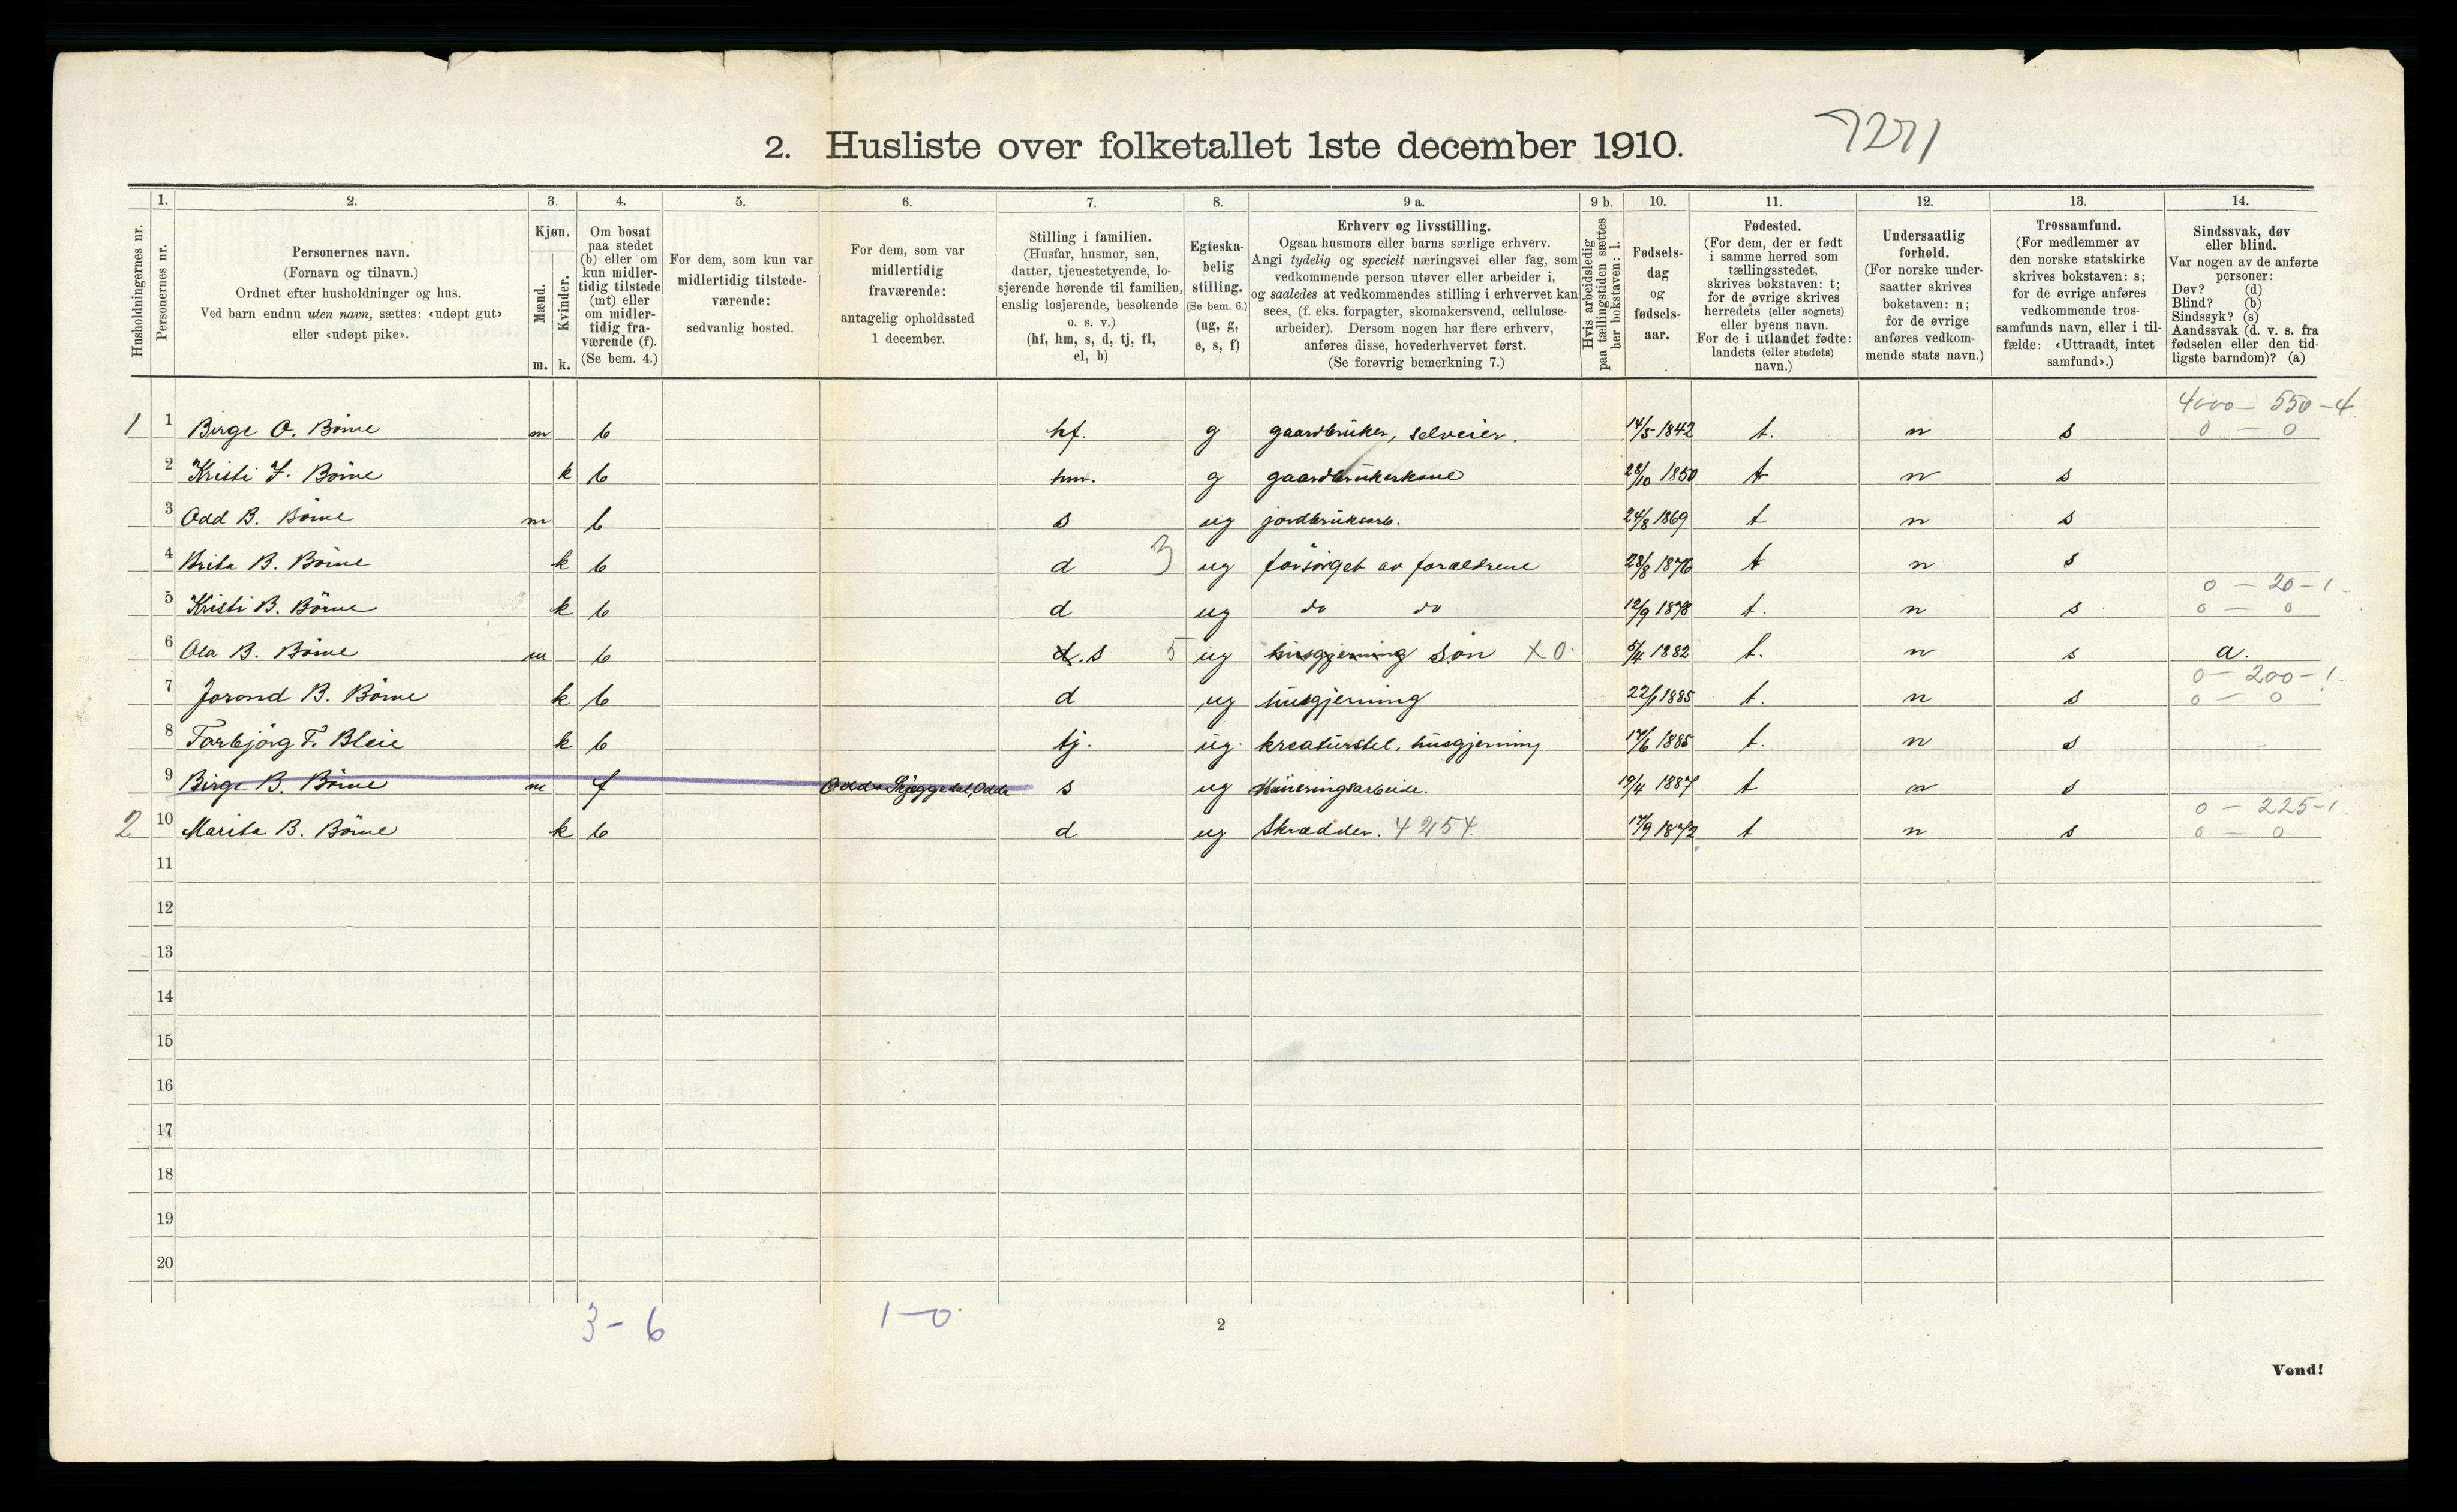 7271
2. Husliste over folketallet 1ste december 1910.
1. 2. 3. 4. 5. 6. 7. 8. 9 a. 9 b. 10. 11. 12. 13. 14.
Husholdningernes nr.
Personernes nr.
Personernes navn.
(Fornavn og tilnavn.)
Ordnet efter husholdninger og hus.
Ved barn endnu uten navn, sættes: «udøpt gut»
eller «udøpt pike».
Kjøn.
Mænd.
Kvinder.
m. k.
Om bosat
paa stedet
(b) eller om
kun midler-
tidig tilstede
(mt) eller
om midler-
tidig fra-
værende (f).
(Se bem. 4.)
For dem, som kun var
midlertidig tilstede-
værende:
sedvanlig bosted.
For dem, som var
midlertidig
fraværende:
antagelig opholdssted
1 december.
Stilling i familien.
(Husfar, husmor, søn,
datter, tjenestetyende, lo-
sjerende hørende til familien,
enslig losjerende, besøkende
o. s. v.)
(hf, hm, s, d, tj, fl,
el, b)
Egteska-
belig
stilling.
(Se bem. 6.)
(ug, g,
e, s, f)
Erhverv og livsstilling.
Ogsaa husmors eller barns særlige erhverv.
Angi tydelig og specielt næringsvei eller fag, som
vedkommende person utøver eller arbeider i,
og saaledes at vedkommendes stilling i erhvervet kan
sees, (f. eks. forpagter, skomakersvend, cellulose-
arbeider). Dersom nogen har flere erhverv,
anføres disse, hovederhvervet først.
(Se forøvrig bemerkning 7.)
Hvis arbeidsledig
paa tællingstiden sættes
her bokstaven: l.
Fødsels-
dag
og
fødsels-
aar.
Fødested.
(For dem, der er født
i samme herred som
tællingsstedet,
skrives bokstaven: t;
for de øvrige skrives
herredets (eller sognets)
eller byens navn.
For de i utlandet fødte:
landets (eller stedets)
navn.)
Undersaatlig
forhold.
(For norske under-
saatter skrives
bokstaven: n;
for de øvrige
anføres vedkom-
mende stats navn.)
Trossamfund.
(For medlemmer av
den norske statskirke
skrives bokstaven: s;
for de øvrige anføres
vedkommende tros-
samfunds navn, eller i til-
fælde: «Uttraadt, intet
samfund».)
Sindssvak, døv
eller blind.
Var nogen av de anførte
personer:
Døv? (d)
Blind? (b)
Sindssyk? (s)
Aandssvak (d. v. s. fra
fødselen eller den tid-
ligste barndom)? (a)
4000 - 550 - 4
1 1 Birge O. Börve m b hf. g gaardbruker, selveier. 14/5 1842 t. n s 0 - 0
2 Kristi J. Börve k b hm. g gaardbrukerkone 28/10 1850 t n s
3 Odd B. Börve m b s ug jordbruksarb. 24/8 1869 t n s
4 Brita B. Börve k b d 3 ug forsörget av forældrene 28/8 1876 t n s
0 - 20 - 1
5 Kristi B. Börve k b d ug do do 12/9 1878 t. n s 0 - 0
6 Ola B. Börve m b d. s 5 ug husgjerning sön X0. 5/4 1882 t. n s a.
0 - 200 - 1.
7 Jorond B. Börve k b d ug husgjerning 22/1 1885 t. n s 0 - 0
8 Torbjörg T. Bleie k b tj. ug. kreaturstel, husgjerning 17/6 1885 t. n s
9 Birge B. Börve m f Odda Skjeggedal, Odda s ug Mineringsarbeide. 19/4 1887 t n s
0 - 225 - 1
2 10 Marita B. Börve k b d ug Skrædder. 4254. 17/9 1872 t n s 0 - 0
11
12
13
14
15
16
17
18
19
20
3 - 6 1 - 0
2
Vend!